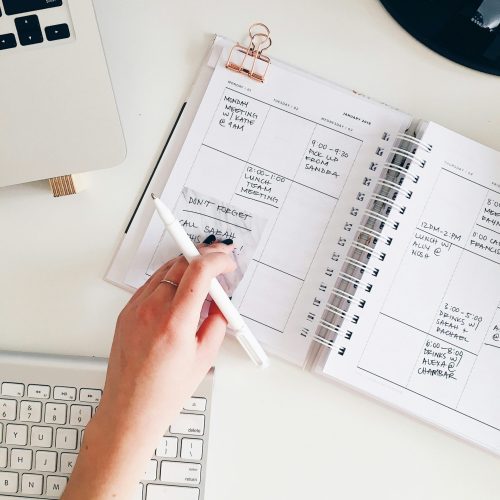 JANUARY 2018
MONDAY • 01
TUESDAY • 02
WEDNESDAY • 03
MONDAY
MEETING
W/ KATIE
@ 9AM
12:00-1:00
LUNCH
TEAM
MEETING
9:00-9:30
PICK LLB
FROM
SANDRA
DON'T FORGET
CALL SARAH
THIS
THURSDAY • 04
12PM-2PM
LUNCH W/
ALLY @
NOSH
3:00-5:00
DRINKS W/
SARAH +
RACHAEL
6:00-8:00
DRINKS W/
ALEXA @
CHAMBAR
delete
return
shift